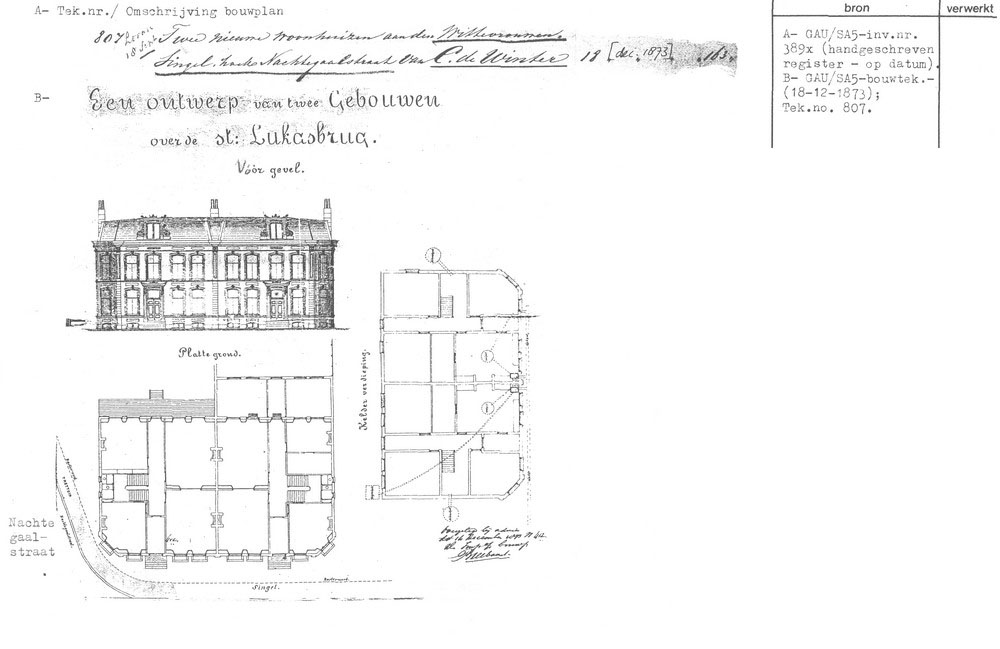 A- Tek.nr./ Omschrijving bouwplan
bron
verwerkt
807 Twee nieuwe woonhuizen aan den Wittevrouwen
Singel, hoek Nachtegaalstraat van C. de Winter 18 [dec. 1873] 163.
A- GAU/SA5-inv.nr.
389x (handgeschreven
register - op datum).
B- GAU/SA5-bouwtek.-
(18-12-1873);
Tek.no. 807.
B- Een ontwerp van twee Gebouwen
over de st: Lukasbrug.
Vóór gevel.
Platte grond.
Kelder verdieping.
Nachte
gaal-
straat
Singel.